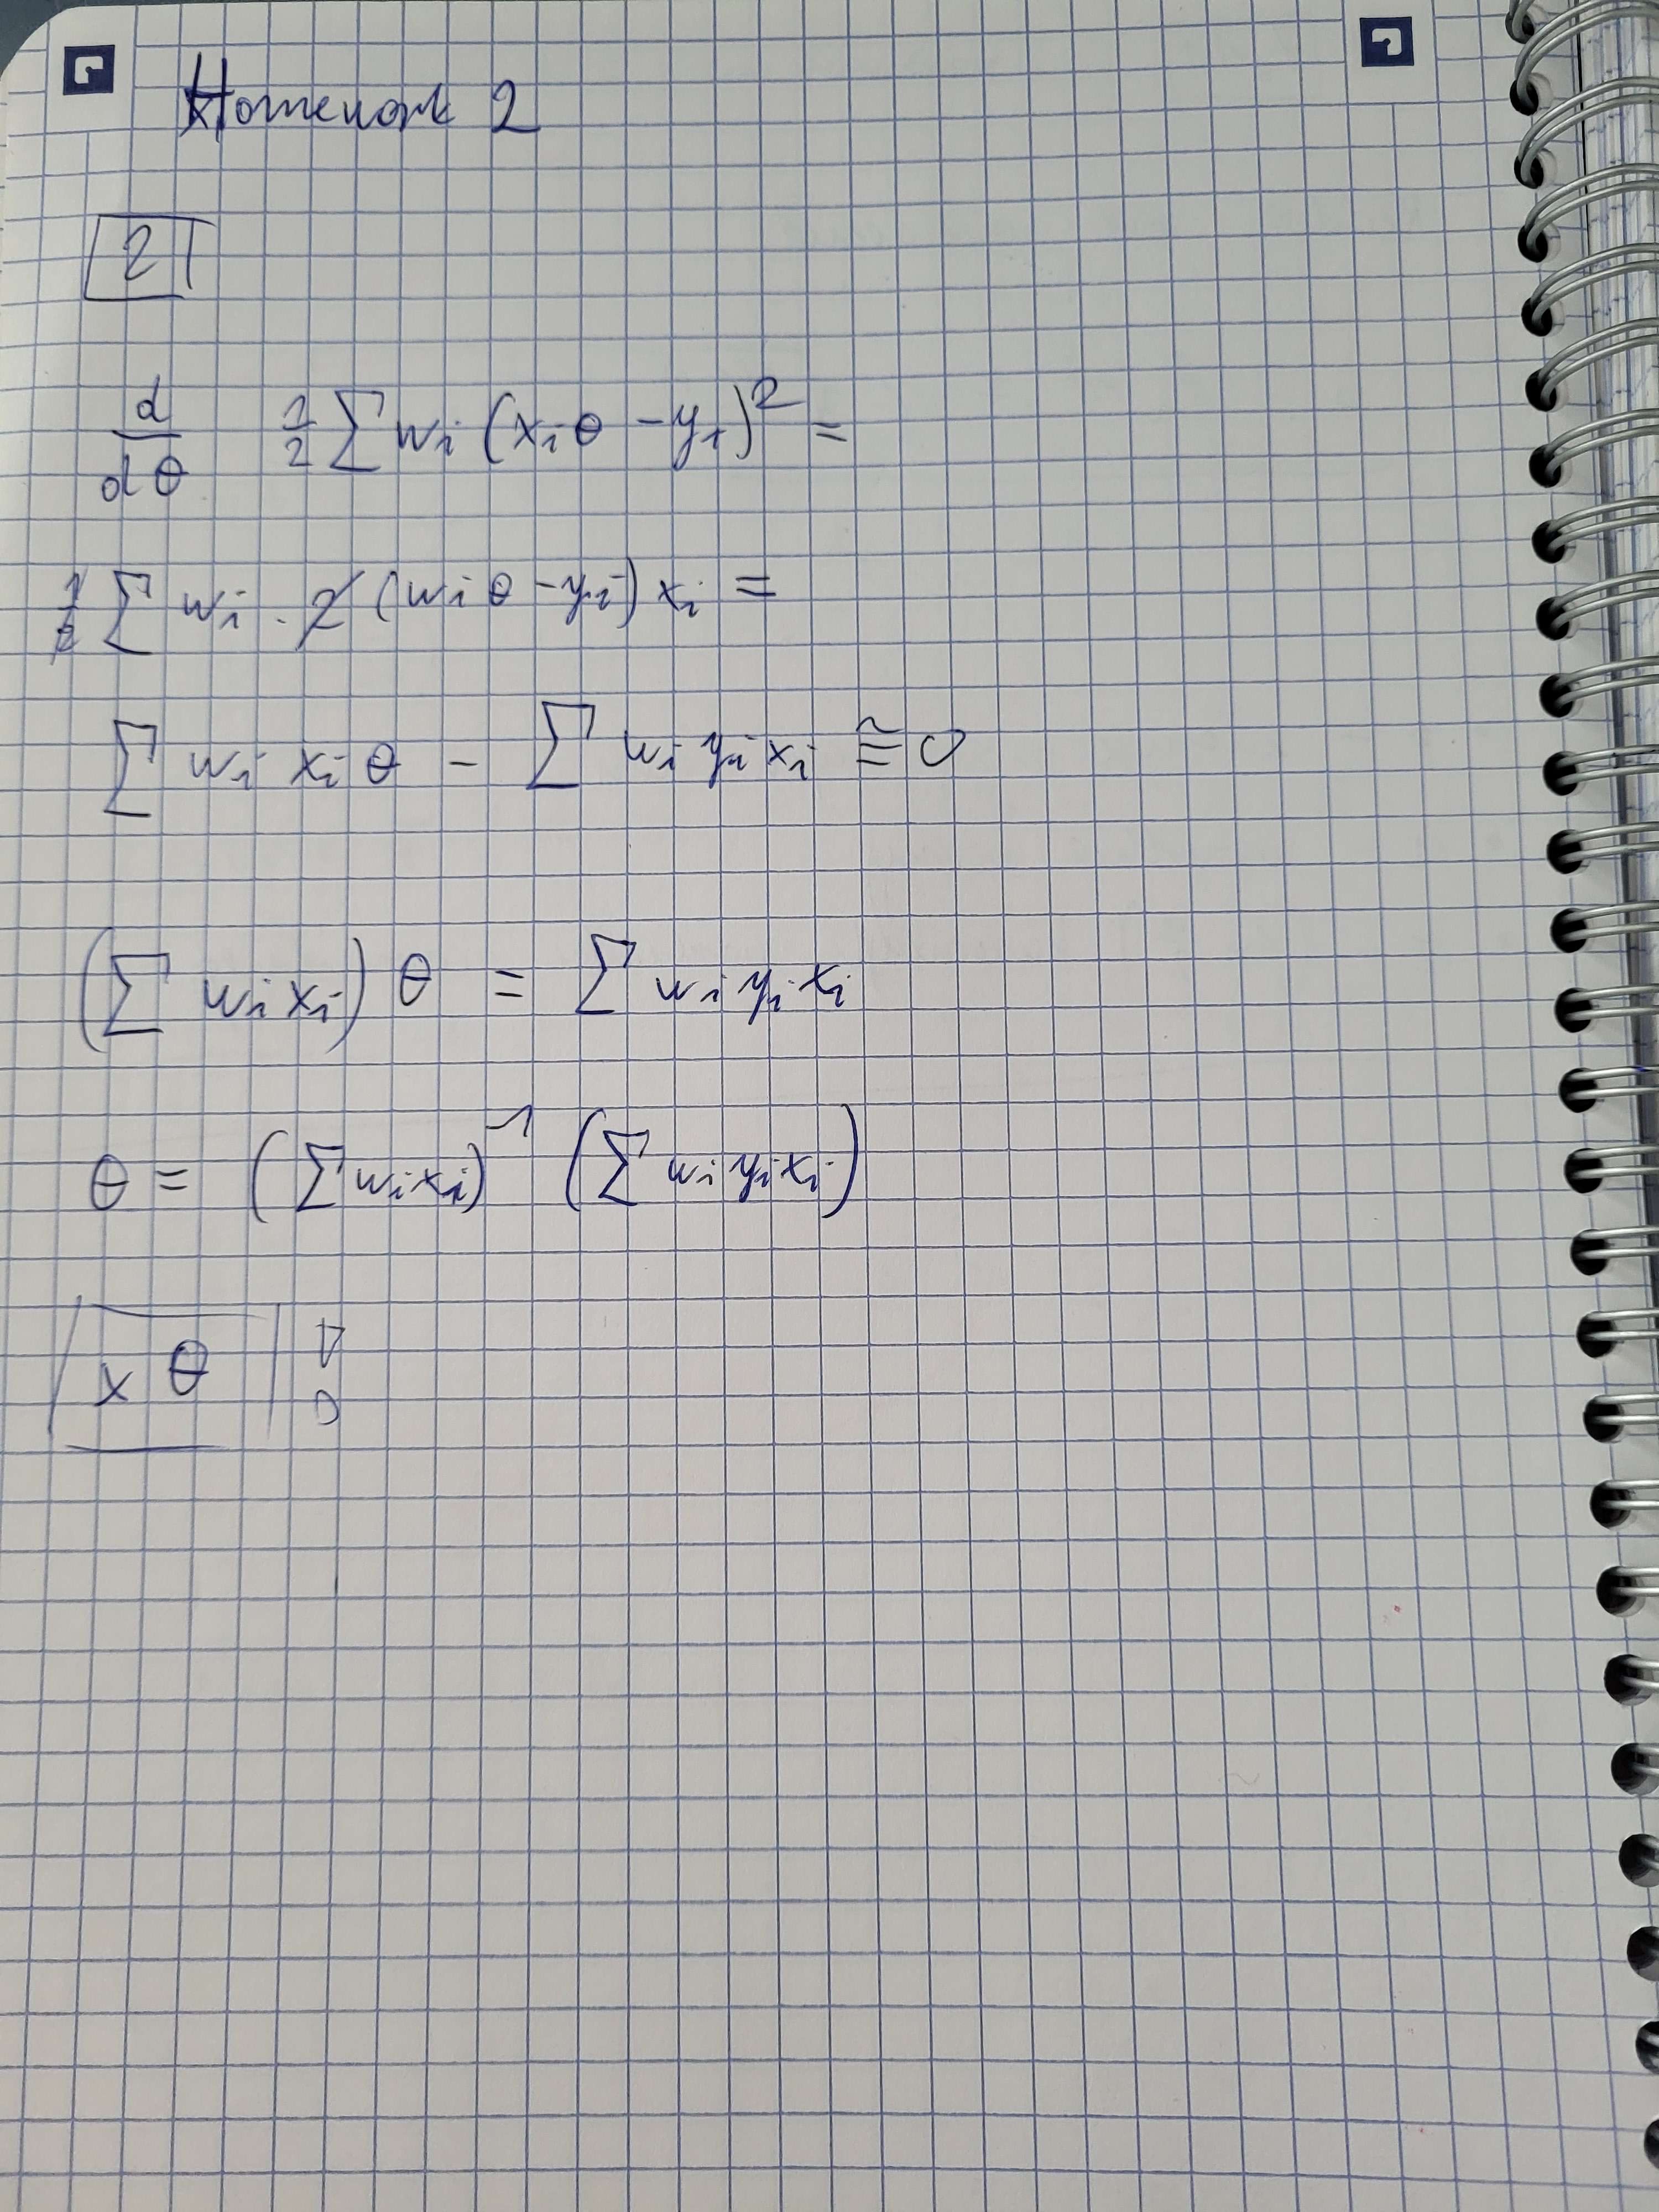 Homework 2
2
d/dθ 1/2 ∑ wi (xiθ - y1)² =
1/2 ∑ wi · 2 (wi θ - yi) xi =
∑ wi xi θ - ∑ wi yi xi ≅ 0
(∑ wi xi) θ = ∑ wi yi xi
θ = (∑ wi xi)⁻¹ (∑ wi yi xi)
x θ